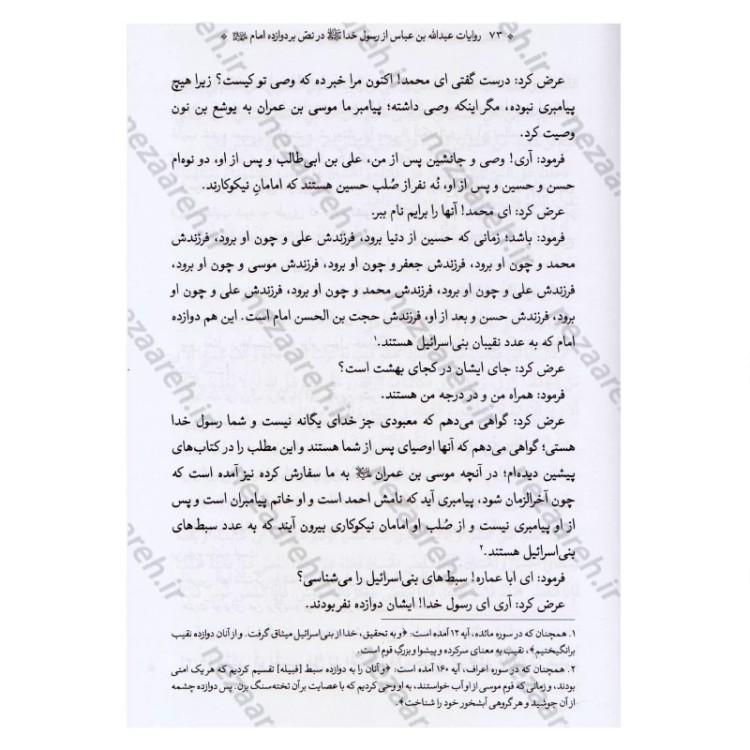 ۷۳ روایات عبدالله بن عباس از رسول خدا ﷺ در نصّ بر دوازده امام
عرض کرد: درست گفتی ای محمد! اکنون مرا خبر ده که وصی تو کیست؟ زیرا هیچ
پیامبری نبوده، مگر اینکه وصی داشته؛ پیامبر ما موسی بن عمران به یوشع بن نون
وصیت کرد.
فرمود: آری! وصی و جانشین پس از من، علی بن ابی‌طالب و پس از او، دو نوه‌ام
حسن و حسین و پس از او، نُه نفر از صُلب حسین هستند که امامانِ نیکوکارند.
عرض کرد: ای محمد! آنها را برایم نام ببر.
فرمود: باشد؛ زمانی که حسین از دنیا برود، فرزندش علی و چون او برود، فرزندش
محمد و چون او برود، فرزندش جعفر و چون او برود، فرزندش موسی و چون او برود،
فرزندش علی و چون او برود، فرزندش محمد و چون او برود، فرزندش علی و چون او
برود، فرزندش حسن و بعد از او، فرزندش حجت بن الحسن امام است. این هم دوازده
امام که به عدد نقیبان بنی‌اسرائیل هستند.۱
عرض کرد: جای ایشان در کجای بهشت است؟
فرمود: همراه من و در درجه من هستند.
عرض کرد: گواهی می‌دهم که معبودی جز خدای یگانه نیست و شما رسول خدا
هستی؛ گواهی می‌دهم که آنها اوصیای پس از شما هستند و این مطلب را در کتاب‌های
پیشین دیده‌ام؛ در آنچه موسی بن عمران به ما سفارش کرده نیز آمده است که
چون آخرالزمان شود، پیامبری آید که نامش احمد است و او خاتم پیامبران است و پس
از او پیامبری نیست و از صُلب او امامان نیکوکاری بیرون آیند که به عدد سبط‌های
بنی‌اسرائیل هستند.۲
فرمود: ای ابا عماره! سبط‌های بنی‌اسرائیل را می‌شناسی؟
عرض کرد: آری ای رسول خدا! ایشان دوازده نفر بودند.
۱. همچنان که در سوره مائده، آیه ۱۲ آمده است: ﴿و به تحقیق، خدا از بنی‌اسرائیل میثاق گرفت. و از آنان دوازده نقیب
برانگیختیم﴾، نقیب به معنای سرکرده و پیشوا و بزرگِ قوم است.
۲. همچنان که در سوره اعراف، آیه ۱۶۰ آمده است: ﴿و آنان را به دوازده سبط [قبیله] تقسیم کردیم که هر یک امتی
بودند، و زمانی که قوم موسی از او آب خواستند، به او وحی کردیم که با عصایت بر آن تخته‌سنگ بزن. پس دوازده چشمه
از آن جوشید و هر گروهی آبشخور خود را شناخت﴾.
nezaareh.ir